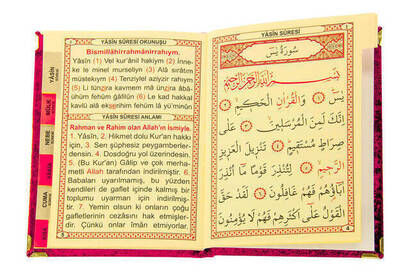 YÂSÎN SÛRESİ OKUNUŞU
Bismillâhirrahmânirrahıym.
Yâsîn (1) Vel kur'ânil hakiym (2) İnne-
ke le minel murseliyn (3) Alâ sırâtım
müstekıym (4) Tenziylel aziyzir rahıym
(5) Li tünzira kavmem mâ ünzira âbâ-
ühüm fehüm ğâfilûn (6) Le kad hakkal
kavlü alâ ekserihim fehüm lâ yü'minûn
YÂSÎN SÛRESİ ANLAMI
Rahman ve Rahim olan Allah'ın İsmiyle.
1. Yâsîn. 2. Hikmet dolu Kur'an hakkı
için, 3. Sen şüphesiz peygamberler-
densin. 4. Dosdoğru yol üzerindesin.
5. (Bu Kur'an) Gâlip ve çok merha-
metli Allah tarafından indirilmiştir. 6.
Babaları uyarılmamış, bu yüzden
kendileri de gaflet içinde kalmış bir
toplumu uyarman için indirilmiş-
tir. 7. Yemin olsun ki onların çoğu
gafletlerinin cezâsını hak etmişler-
dir. Çünkü onlar îman etmiyorlar.
YÂSİN
MÜLK
NEBE
CUMA
YÂSÎN SÛRESİ
سُورَةُ يٰسٓ
بِسْمِ اللّٰهِ الرَّحْمٰنِ الرَّحِيمِ
يٰسٓ ﴿١﴾ وَالْقُرْاٰنِ الْحَكِيمِ ﴿٢﴾
اِنَّكَ لَمِنَ الْمُرْسَلِينَ ﴿٣﴾ عَلٰى
صِرَاطٍ مُسْتَقِيمٍ ﴿٤﴾ تَنْزِيلَ الْعَزِيزِ
الرَّحِيمِ ﴿٥﴾ لِتُنْذِرَ قَوْمًا مَٓا اُنْذِرَ
اٰبَٓاؤُ۬هُمْ فَهُمْ غَافِلُونَ ﴿٦﴾ لَقَدْ حَقَّ
الْقَوْلُ عَلٰٓى اَكْثَرِهِمْ فَهُمْ لَا يُؤْمِنُونَ